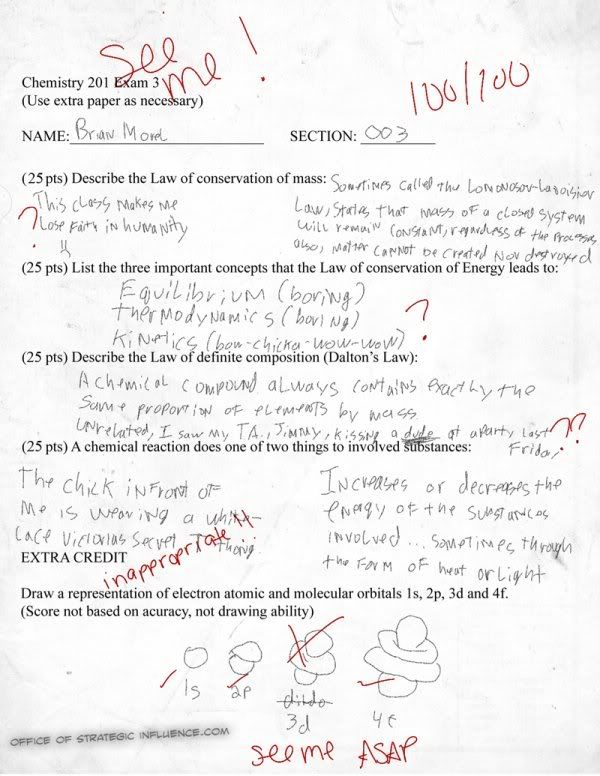 see me!
100/100
Chemistry 201 Exam 3
(Use extra paper as necessary)
NAME: Brian Morel SECTION: 003
(25 pts) Describe the Law of conservation of mass: Sometimes called the Lomonosov-Lavoisier
Law, States that mass of a closed system
will remain constant, regardless of the Processes
also, matter cannot be created nor destroyed
This class makes me
Lose faith in humanity
?
(25 pts) List the three important concepts that the Law of conservation of Energy leads to:
Equilibrium (boring)
thermodynamics (boring)
kinetics (bow-chicka-wow-wow)
?
(25 pts) Describe the Law of definite composition (Dalton's Law):
A chemical compound always contains exactly the
same proportion of elements by mass
unrelated, I saw my TA., Jimmy, kissing a dude at a party last
Friday
??
(25 pts) A chemical reaction does one of two things to involved substances:
The chick in front of
me is wearing a white
Lace Victorias Secret thong.
inappropriate!!
Increases or decreases the
energy of the substances
involved... sometimes through
the form of heat or light
EXTRA CREDIT
Draw a representation of electron atomic and molecular orbitals 1s, 2p, 3d and 4f.
(Score not based on acuracy, not drawing ability)
1s 2p dildo 4f
3d
OFFICE OF STRATEGIC INFLUENCE.COM
see me ASAP